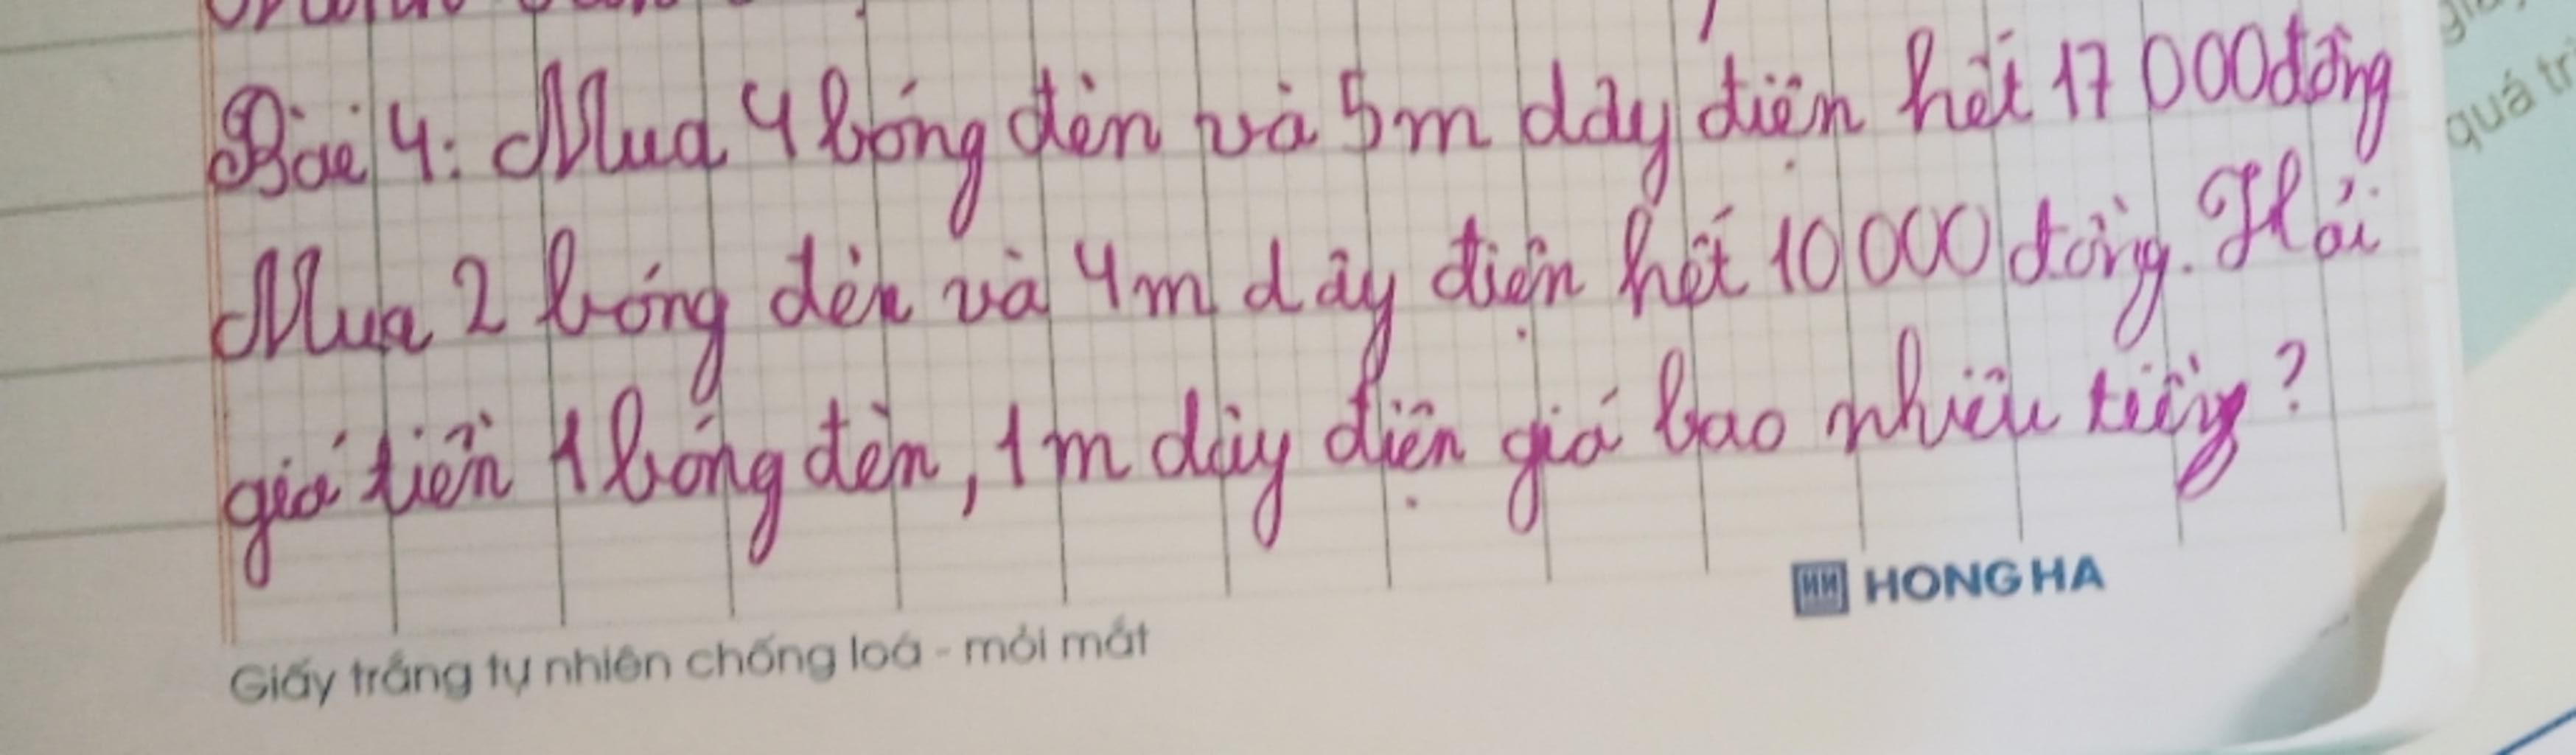 Bài 4: Mua 4 bóng đèn và 5m dây điện hết 17 000 đồng
Mua 2 bóng đèn và 4m dây điện hết 10 000 đồng. Hỏi
giá tiền 1 bóng đèn, 1m dây điện giá bao nhiêu tiền?
HH HONG HA
Giấy trắng tự nhiên chống loá - mỏi mắt
quá tr